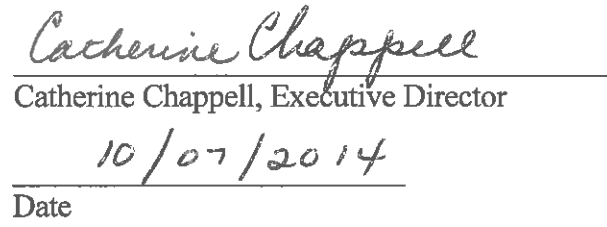 Catherine Chappell
Catherine Chappell, Executive Director
10/07/2014
Date